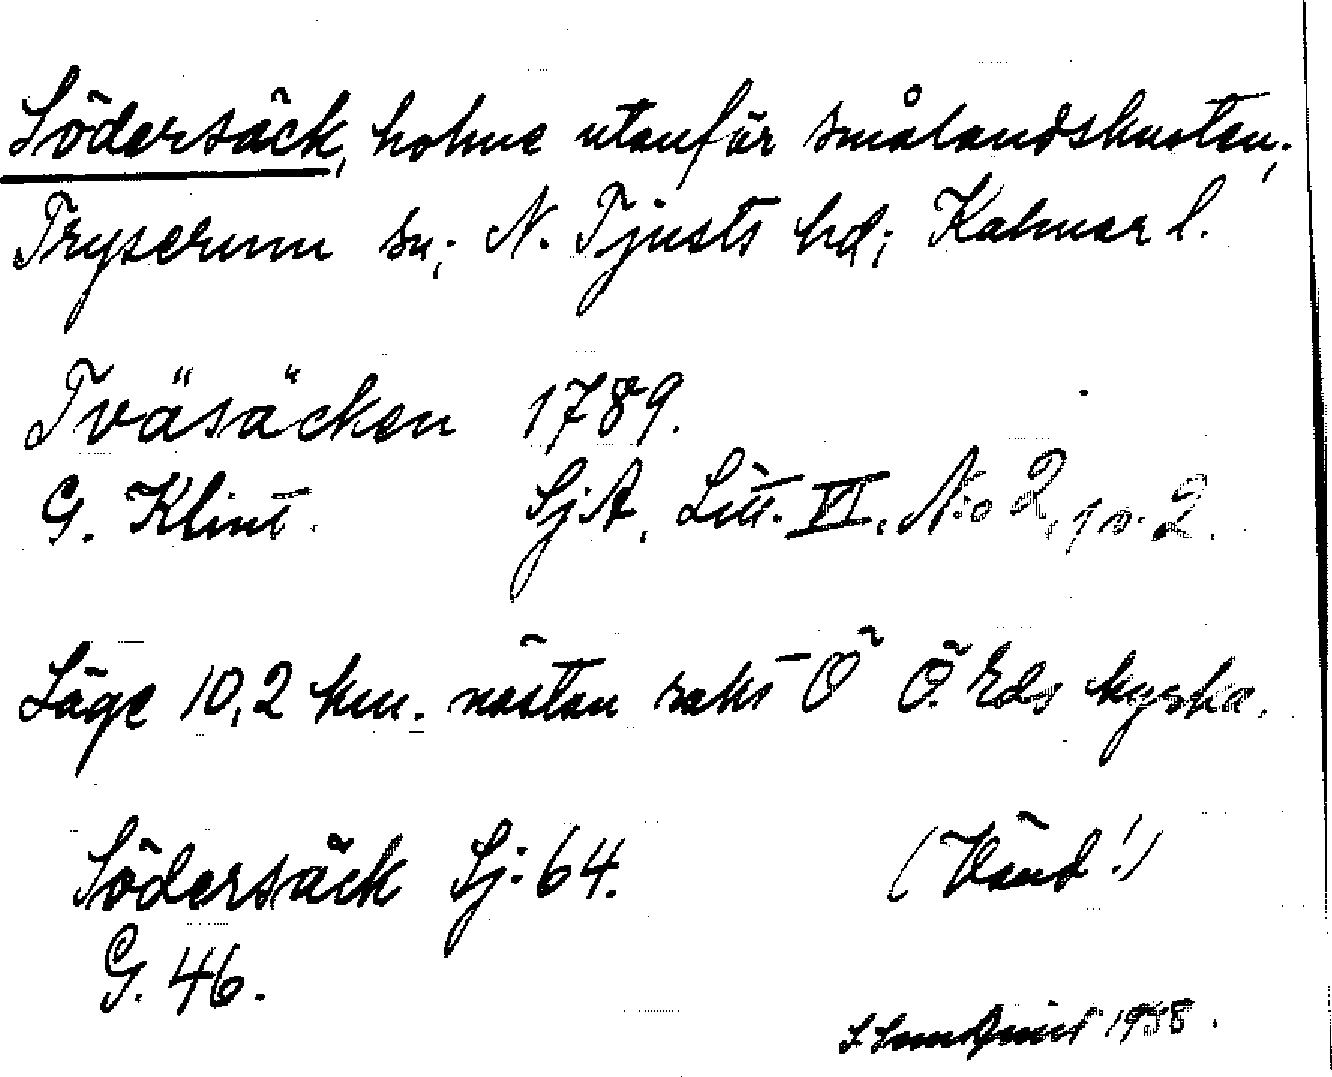 Södersäck, holme utanför smålandskusten;
Tryserum sn; N. Tjusts hd; Kalmar l.
Tväsäcken 1789.
G. Klint. SjA, Litt. VI, N:o 2, p. 2.
Läge 10,2 km. nästan rakt Ö Ö. Eds kyrka.
Södersäck Sj: 64. (Vänd!)
G. 46.
1938.